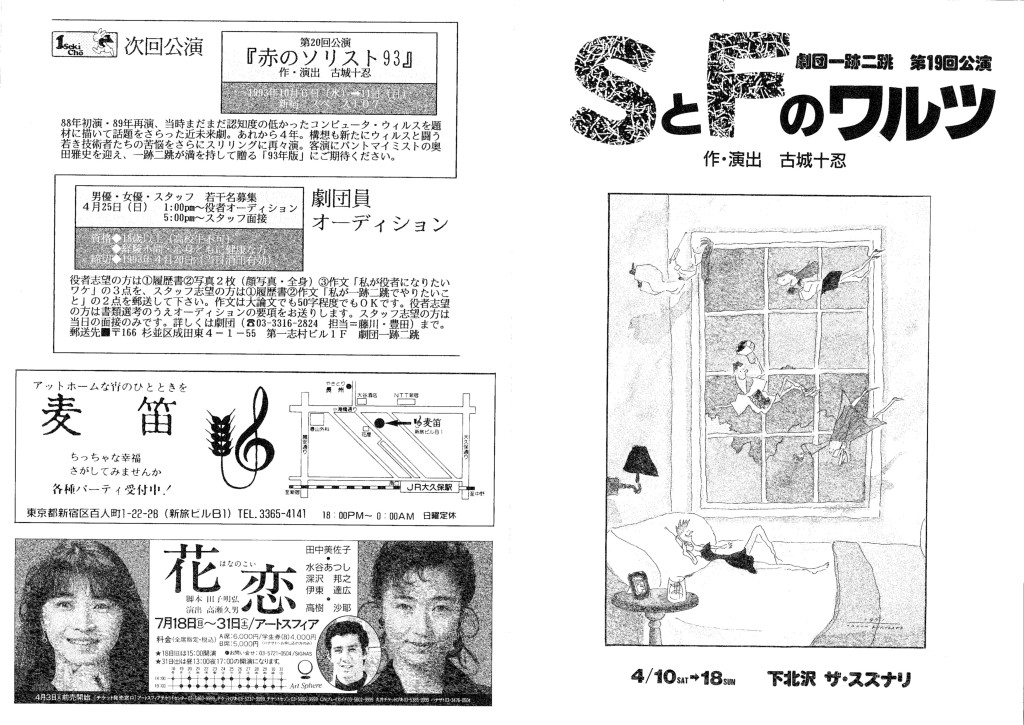 1Seki
Chō
次回公演
第20回公演
『赤のソリスト93』
作・演出 古城十忍
88年初演・89年再演、当時まだまだ認知度の低かったコンピュータ・ウィルスを題
材に描いて話題をさらった近未来劇。あれから4年。構想も新たにウィルスと闘う
若き技術者たちの苦悩をさらにスリリングに再々演。客演にパントマイミストの奥
田雅史を迎え、一跡二跳が満を持して贈る「93年版」にご期待ください。
男優・女優・スタッフ 若干名募集
4月25日（日） 1:00pm〜役者オーディション
5:00pm〜スタッフ面接
劇団員
オーディション
役者志望の方は①履歴書②写真2枚（顔写真・全身）③作文「私が役者になりたい
ワケ」の3点を、スタッフ志望の方は①履歴書②作文「私が一跡二跳でやりたいこ
と」の2点を郵送して下さい。作文は大論文でも50字程度でもOKです。役者志望
の方は書類選考のうえオーディションの要項をお送りします。スタッフ志望の方は
当日の面接のみです。詳しくは劇団（☎03-3316-2824 担当＝藤川・豊田）まで。
郵送先■〒166 杉並区成田東4－1－55 第一志村ビル1F 劇団一跡二跳
アットホームな宵のひとときを
麦笛
ちっちゃな幸福
さがしてみませんか
各種パーティ受付中!
やきとり
長州
大谷酒店
NTT新宿
小滝橋通り
春山外科
麦笛
新旅ビルB1
大久保通り
JR大久保駅
至新宿
至中野
東京都新宿区百人町1-22-26（新旅ビルB1）TEL.3365-4141
18:00PM〜0:00AM 日曜定休
花恋
はなのこい
脚本 田子明弘
演出 高瀬久男
田中美佐子
・
水谷あつし
深沢 邦之
伊東 達広
・
高樹 沙耶
7月18日(日)〜31日(土)/アートスフィア
料金(全席指定・税込) A席:6,000円/学生券(B)4,000円
B席:5,000円
★18日(日)は15:00開演 ●お問い合せ:03-5721-0504/SIGNAS
★31日(土)は昼13:00夜17:00の開演になります。
Art Sphere
4月3日(土)前売開始
SとFのワルツ
劇団一跡二跳 第19回公演
作・演出 古城十忍
4/10SAT→18SUN 下北沢 ザ・スズナリ